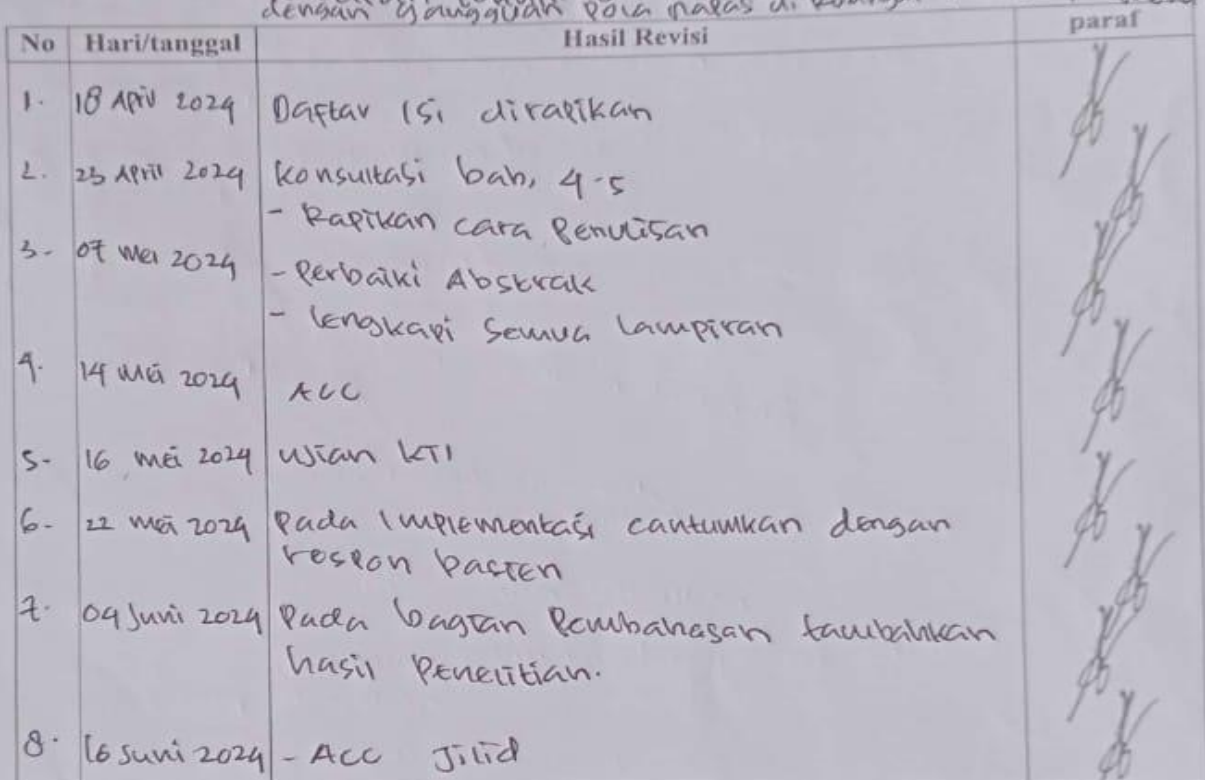 dengan gangguan pola napas di
No Hari/tanggal Hasil Revisi paraf
1. 18 April 2024 Daftar Isi dirapikan
2. 23 April 2024 Konsultasi bab, 4-5
- Rapikan cara Penulisan
3. 07 mei 2024 - Perbaiki Abstrak
- lengkapi Semua lampiran
4. 14 mei 2024 ACC
5. 16 mei 2024 Ujian KTI
6. 22 mei 2024 Pada Implementasi cantumkan dengan
respon pasien
7. 04 Juni 2024 Pada bagian Pembahasan tambahkan
hasil Penelitian.
8. 16 Juni 2024 - ACC Jilid